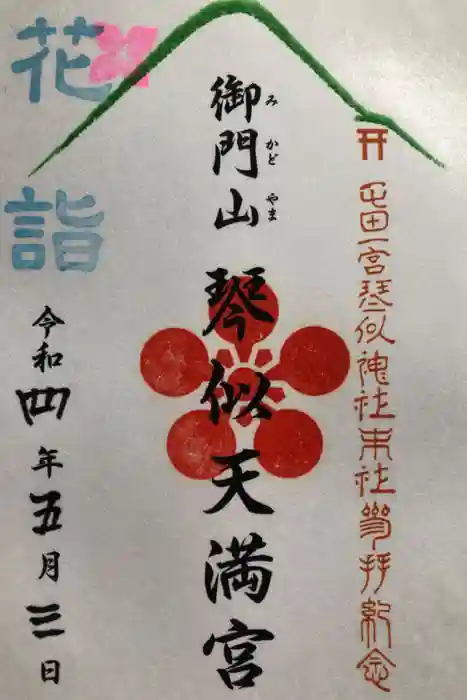 屯田一宮琴似神社末社参拝紀念
御門山 琴似天満宮
みかどやま
花詣
令和四年五月三日